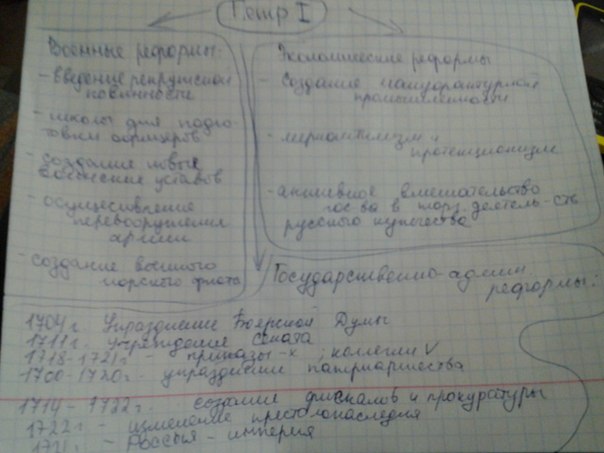 Петр I
Военные реформы:
- введение рекрутской
повинности
- школы для подго-
товки офицеров
- создание новых
воинских уставов
- осуществление
перевооружения
армии
- создание военного
морского флота
Экономические реформы
- создание мануфактурной
промышленности
- меркантилизм и
протекционизм
- активное вмешательство
гос-ва в торг. деятель-сть
русского купечества
Государственно-админ
реформы:
1704г. Упразднение Боярской Думы
1711г. учреждение Сената
1718-1721г - приказы-х ; коллегии V
1700-1720г. упразднение патриаршества
1714-1722г. создание фискалов и прокуратуры
1722г - изменение престолонаследия
1721г - Россия - империя